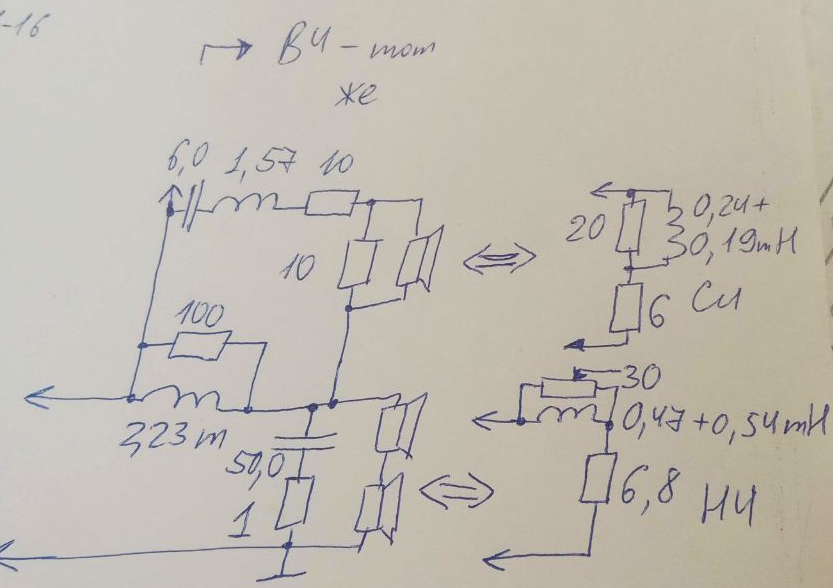 -16
ВЧ - тот
же
6,0 1,57 10
10
20
0,24+
0,19mH
6 СЧ
100
2,23 m
50,0
1
30
0,47+0,54mH
6,8 НЧ